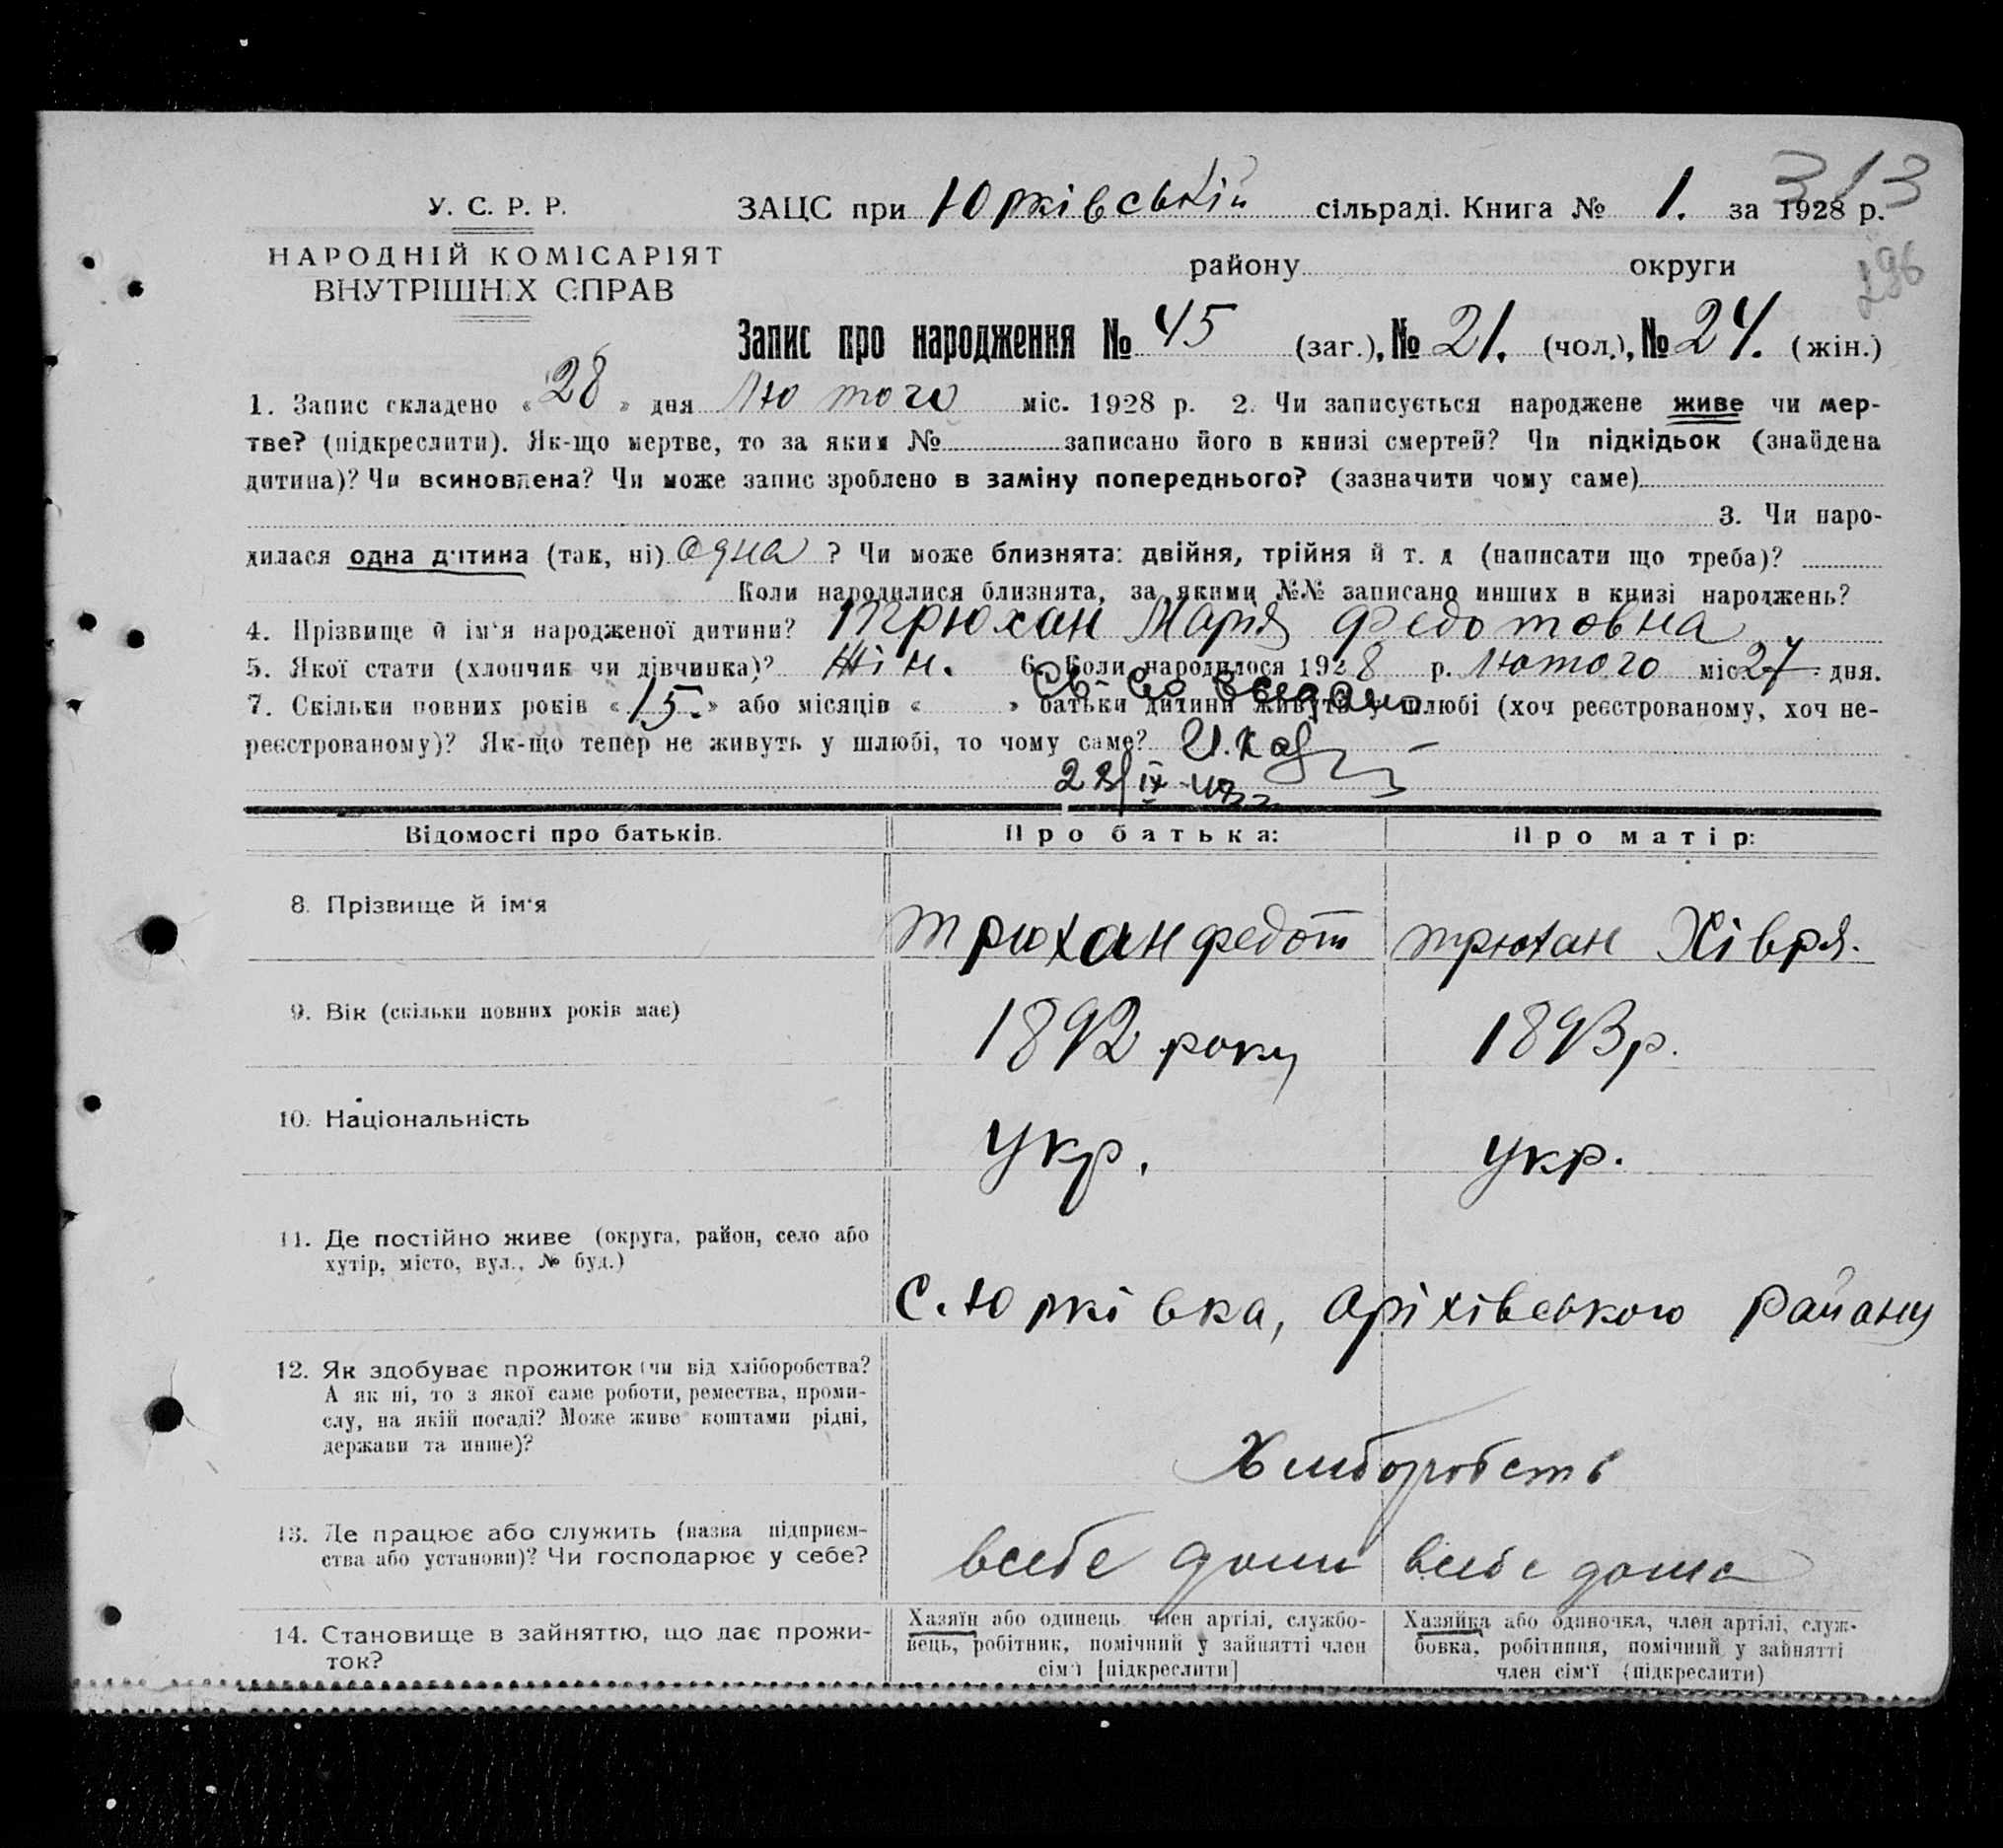 313
У. С. Р. Р.
ЗАЦС при Юрківській сільраді. Книга № 1. за 1928 р.
НАРОДНІЙ КОМІСАРІЯТ
ВНУТРІШНІХ СПРАВ
району округи
196
Запис про народження № 45 (заг.), № 21. (чол.), № 24. (жін.)
1. Запис складено « 28 » дня лютого міс. 1928 р. 2. Чи записується народжене живе чи мер-
тве? (підкреслити). Як-що мертве, то за яким № записано його в книзі смертей? Чи підкідьок (знайдена
дитина)? Чи всиновлена? Чи може запис зроблено в заміну попереднього? (зазначити чому саме)
3. Чи наро-
дилася одна дитина (так, ні) одна ? Чи може близнята: двійня, трійня й т. д (написати що треба)?
Коли народилися близнята, за якими №№ записано инших в книзі народжень?
4. Прізвище й ім'я народженої дитини? Трюхан Марія Федотовна
5. Якої стати (хлопчик чи дівчинка)? жін. 6. Коли народилося 1928 р. лютого міс 27 дня.
7. Скільки повних років « 15. » або місяців « » батьки дитини живуть у шлюбі (хоч реєстрованому, хоч не-
реєстрованому)? Як-що тепер не живуть у шлюбі, то чому саме?
Відомості про батьків. Про батька: Про матір:
8. Прізвище й ім'я Трюхан Федот Трюхан Хівря.
9. Вік (скільки повних років має) 1892 року 1893 р.
10. Національність укр. укр.
11. Де постійно живе (округа, район, село або
хутір, місто, вул., № буд.)
с. Юрківка, Оріхівського району
12. Як здобуває прожиток (чи від хліборобства?
А як ні, то з якої саме роботи, ремества, проми-
слу, на якій посаді? Може живе коштами рідні,
держави та инше)?
13. Де працює або служить (назва підприєм-
ства або установи)? Чи господарює у себе?
всебе дома всебе дома
14. Становище в зайняттю, що дає прожи-
ток?
Хазяїн або одинець член артілі, службо-
вець, робітник, помічний у зайнятті член
сім'ї [підкреслити]
Хазяйка або одиночка, член артілі, служ-
бовка, робітниця, помічний у зайнятті
член сім'ї (підкреслити)